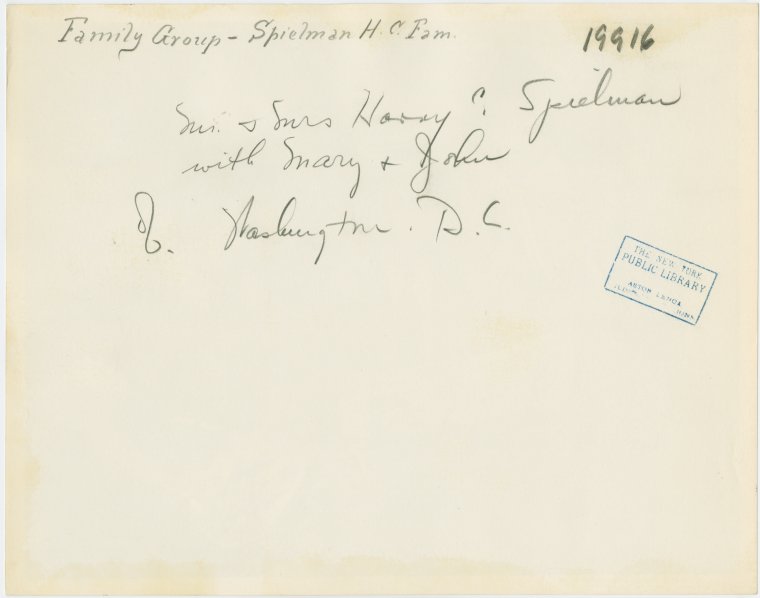 Family Group - Spielman H. C. Fam.
19916
Mr. & Mrs Harry C. Spielman
with Mary + John
of. Washington. D. C.
THE NEW YORK
PUBLIC LIBRARY
ASTOR LENOX